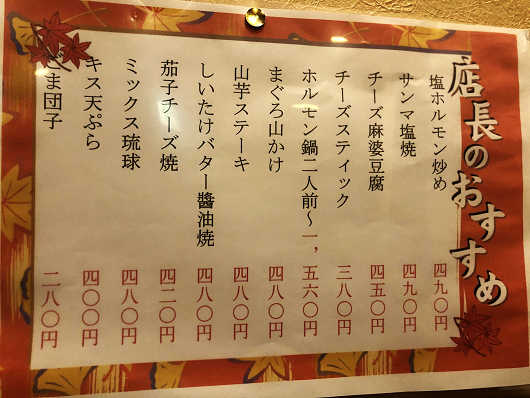 店長のおすすめ
塩ホルモン炒め 四九〇円
サンマ塩焼 四九〇円
チーズ麻婆豆腐 四五〇円
チーズスティック 三八〇円
ホルモン鍋二人前〜一,五六〇円
まぐろ山かけ 四八〇円
山芋ステーキ 四八〇円
しいたけバター醬油焼 四八〇円
茄子チーズ焼 四二〇円
ミックス琉球 四八〇円
キス天ぷら 四〇〇円
ごま団子 二八〇円